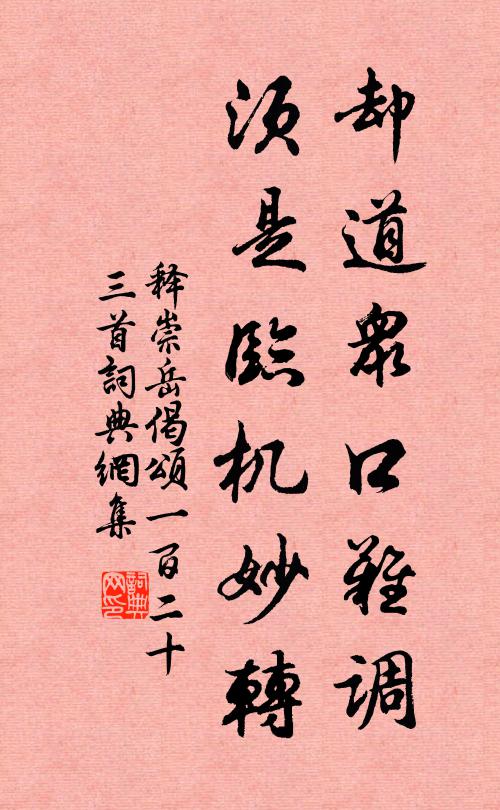 却道衆口难调
須是臨机妙轉
释崇岳偈頌一百二十
三首詞典網集
詞典
网印